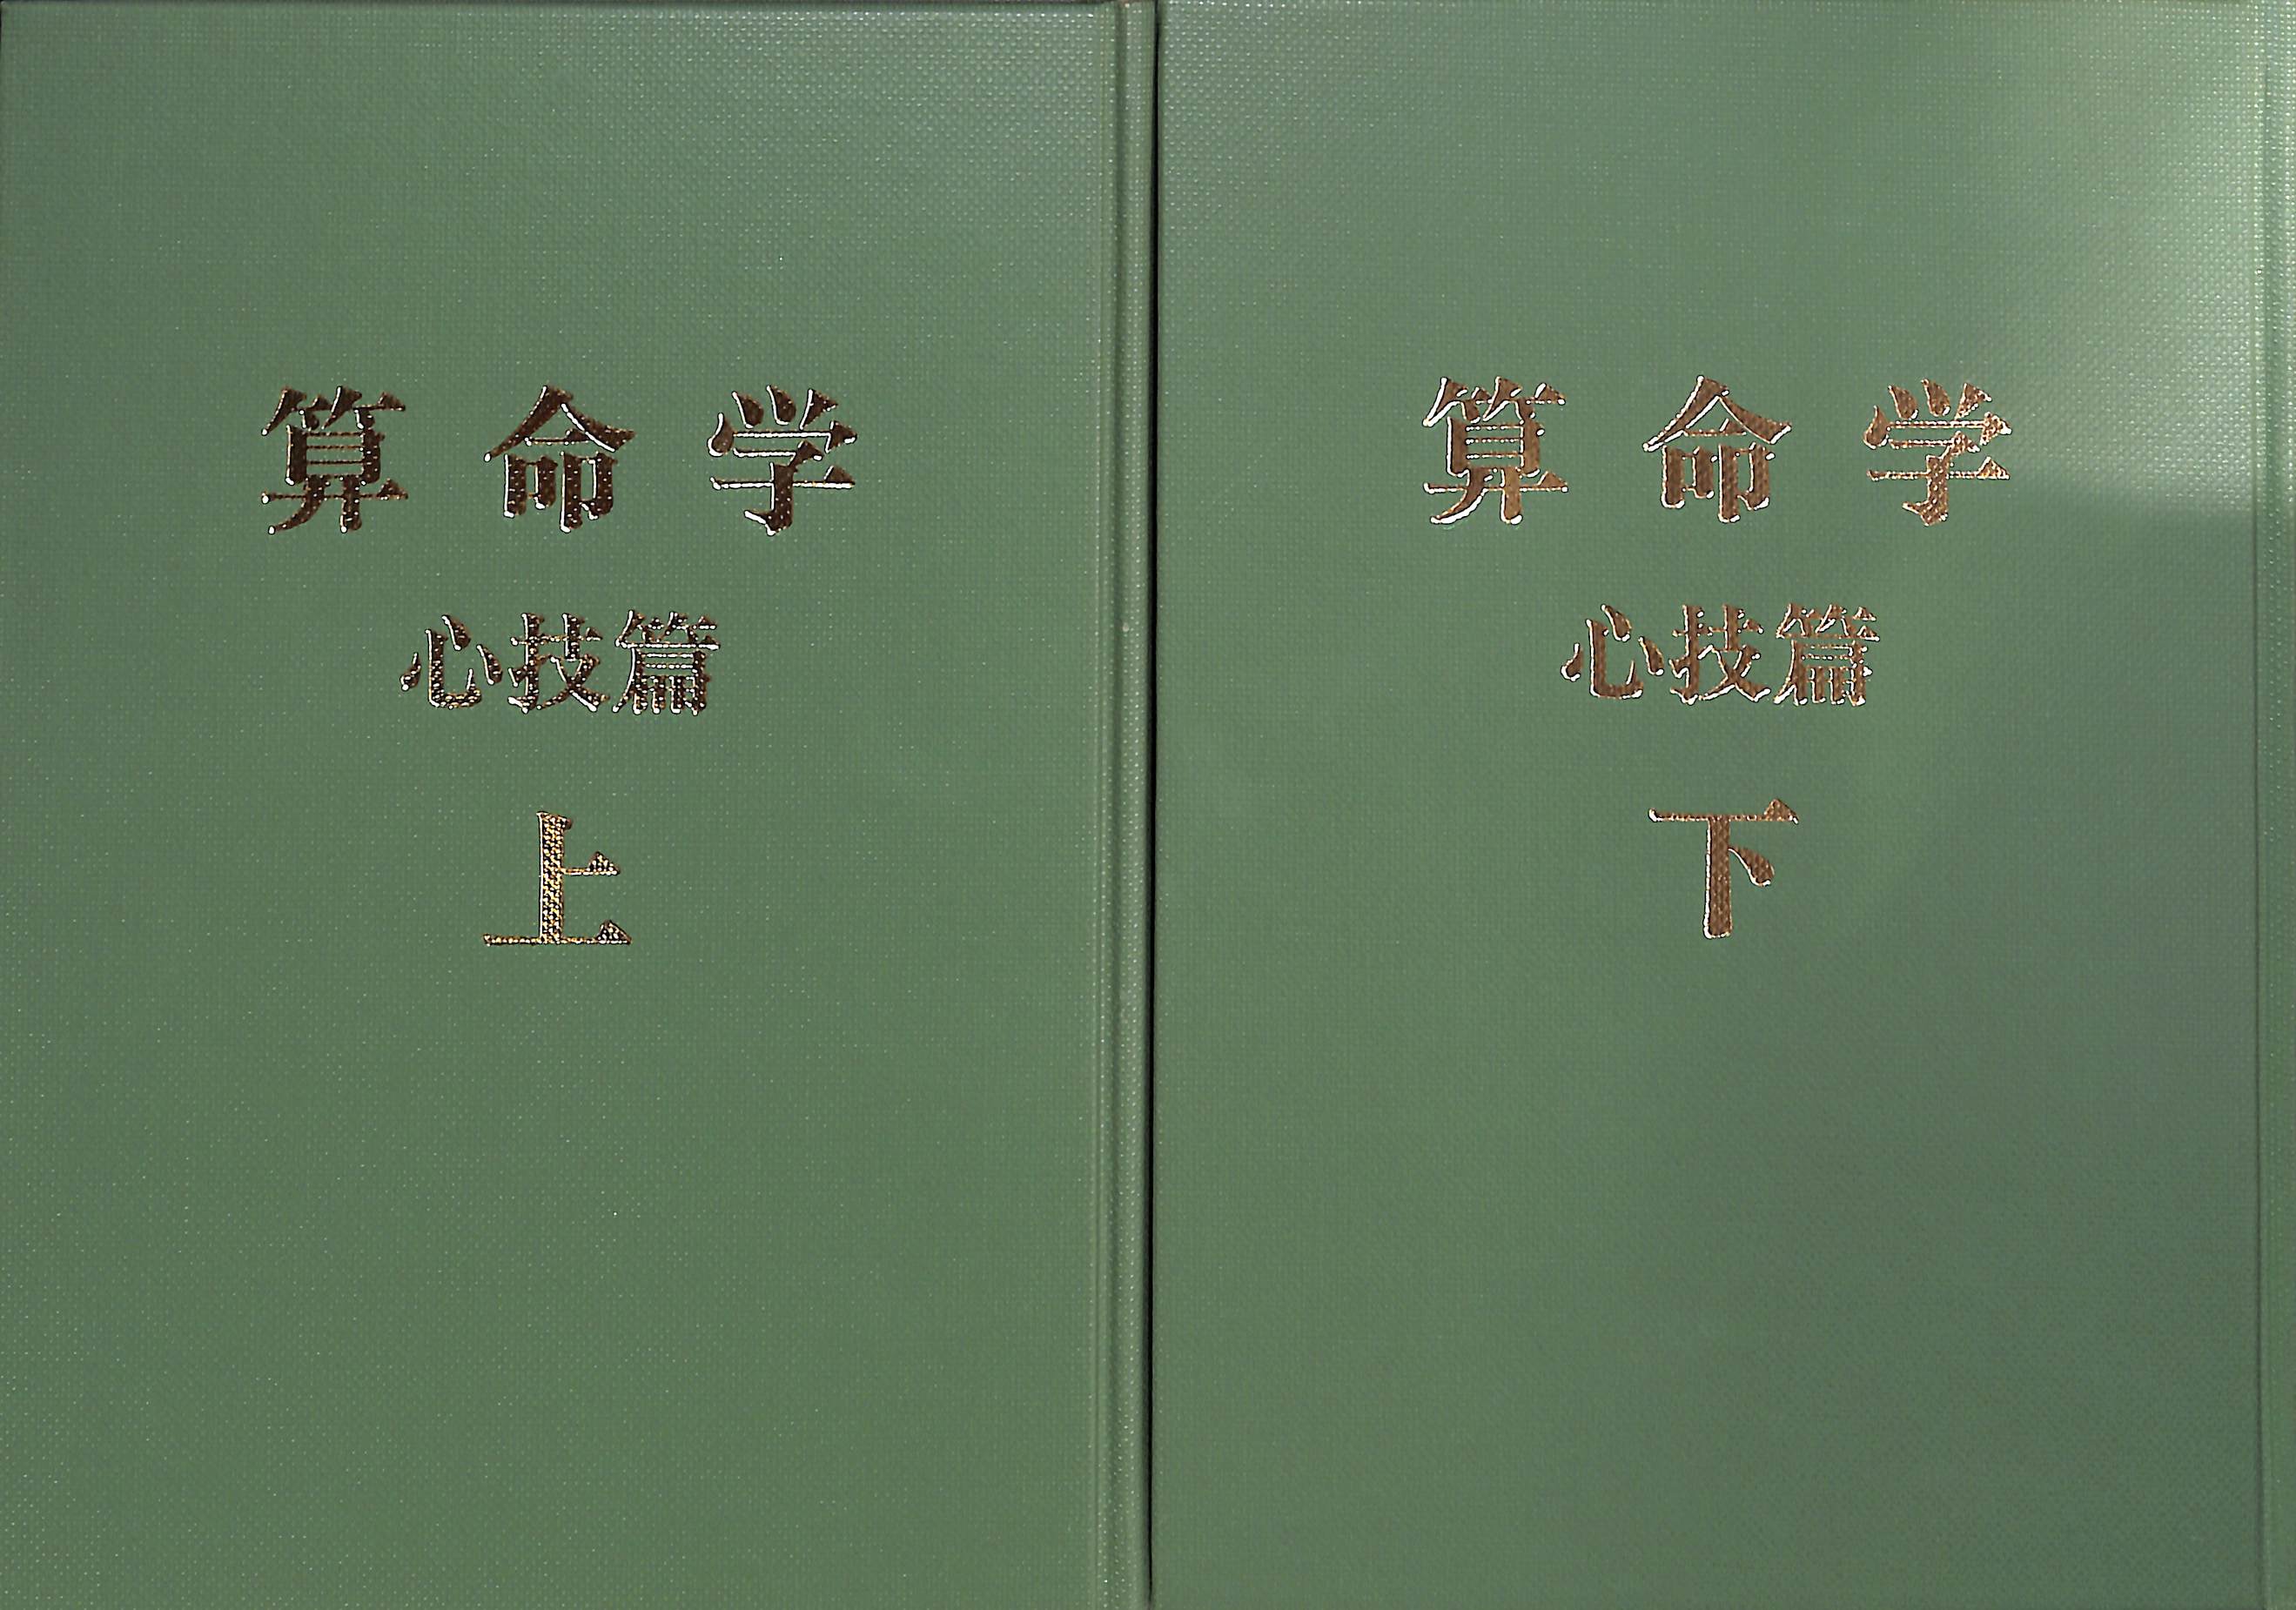 算命学
心技篇
上
算命学
心技篇
下